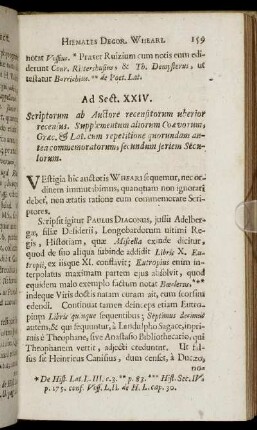 HIEMALES DEGOR. WHEARI. 159
notat Vossius. * Præter Ruizium cum notis eum edi-
derunt Conr. Rittershusius & Th. Dempsterus, ut
testatur Borrichius. ** de Poet. Lat.
Ad Sect. XXIV.
Scriptorum ab Auctore recensitorum uberior
recensus. Supplementum aliorum Coævorum,
Græc. & Lat. cum repetitione quorundam an-
tea commemoratorum, secundum seriem Secu-
lorum.
VEstigia hic auctoris WHEARI sequemur, nec or-
dinem immutabimus, quanquam non ignorari
debet, non ætatis ratione eum commemorare Scri-
ptores.
Scripsit igitur PAULUS DIACONUS, jussu Adelber-
gæ, filiæ Desiderii, Longobardorum ultimi Re-
gis, Historiam, quæ Miscella exinde dicitur,
quod de suo aliqua subinde addidit Libris X. Eu-
tropii, ex iisque XI. conflavit; Eutropius enim in-
terpolatis maximam partem ejus absolvit, quod
equidem malo exemplo factum notat Boxlerus, **
indeque Viris doctis natam curam ait, eum seorsim
edendi. Continuat tamen deinceps etiam Eutro-
pium Libris quinque sequentibus; Septimus decimus
autem, & qui sequuntur, à Landulpho Sagace, inpri-
mis è Theophane, sive Anastasio Bibliothecario, qui
Theophanem vertit, adjecti creduntur. Ut fal-
sus sit Heinricus Canisius, dum censet, à DIACO-
no-
* De Hist. Lat. L. III. c. 3. ** p. 83. *** Hist. Sec. IV.
p. 175. conf. Voss. L. II. de H. L. cap. 30.